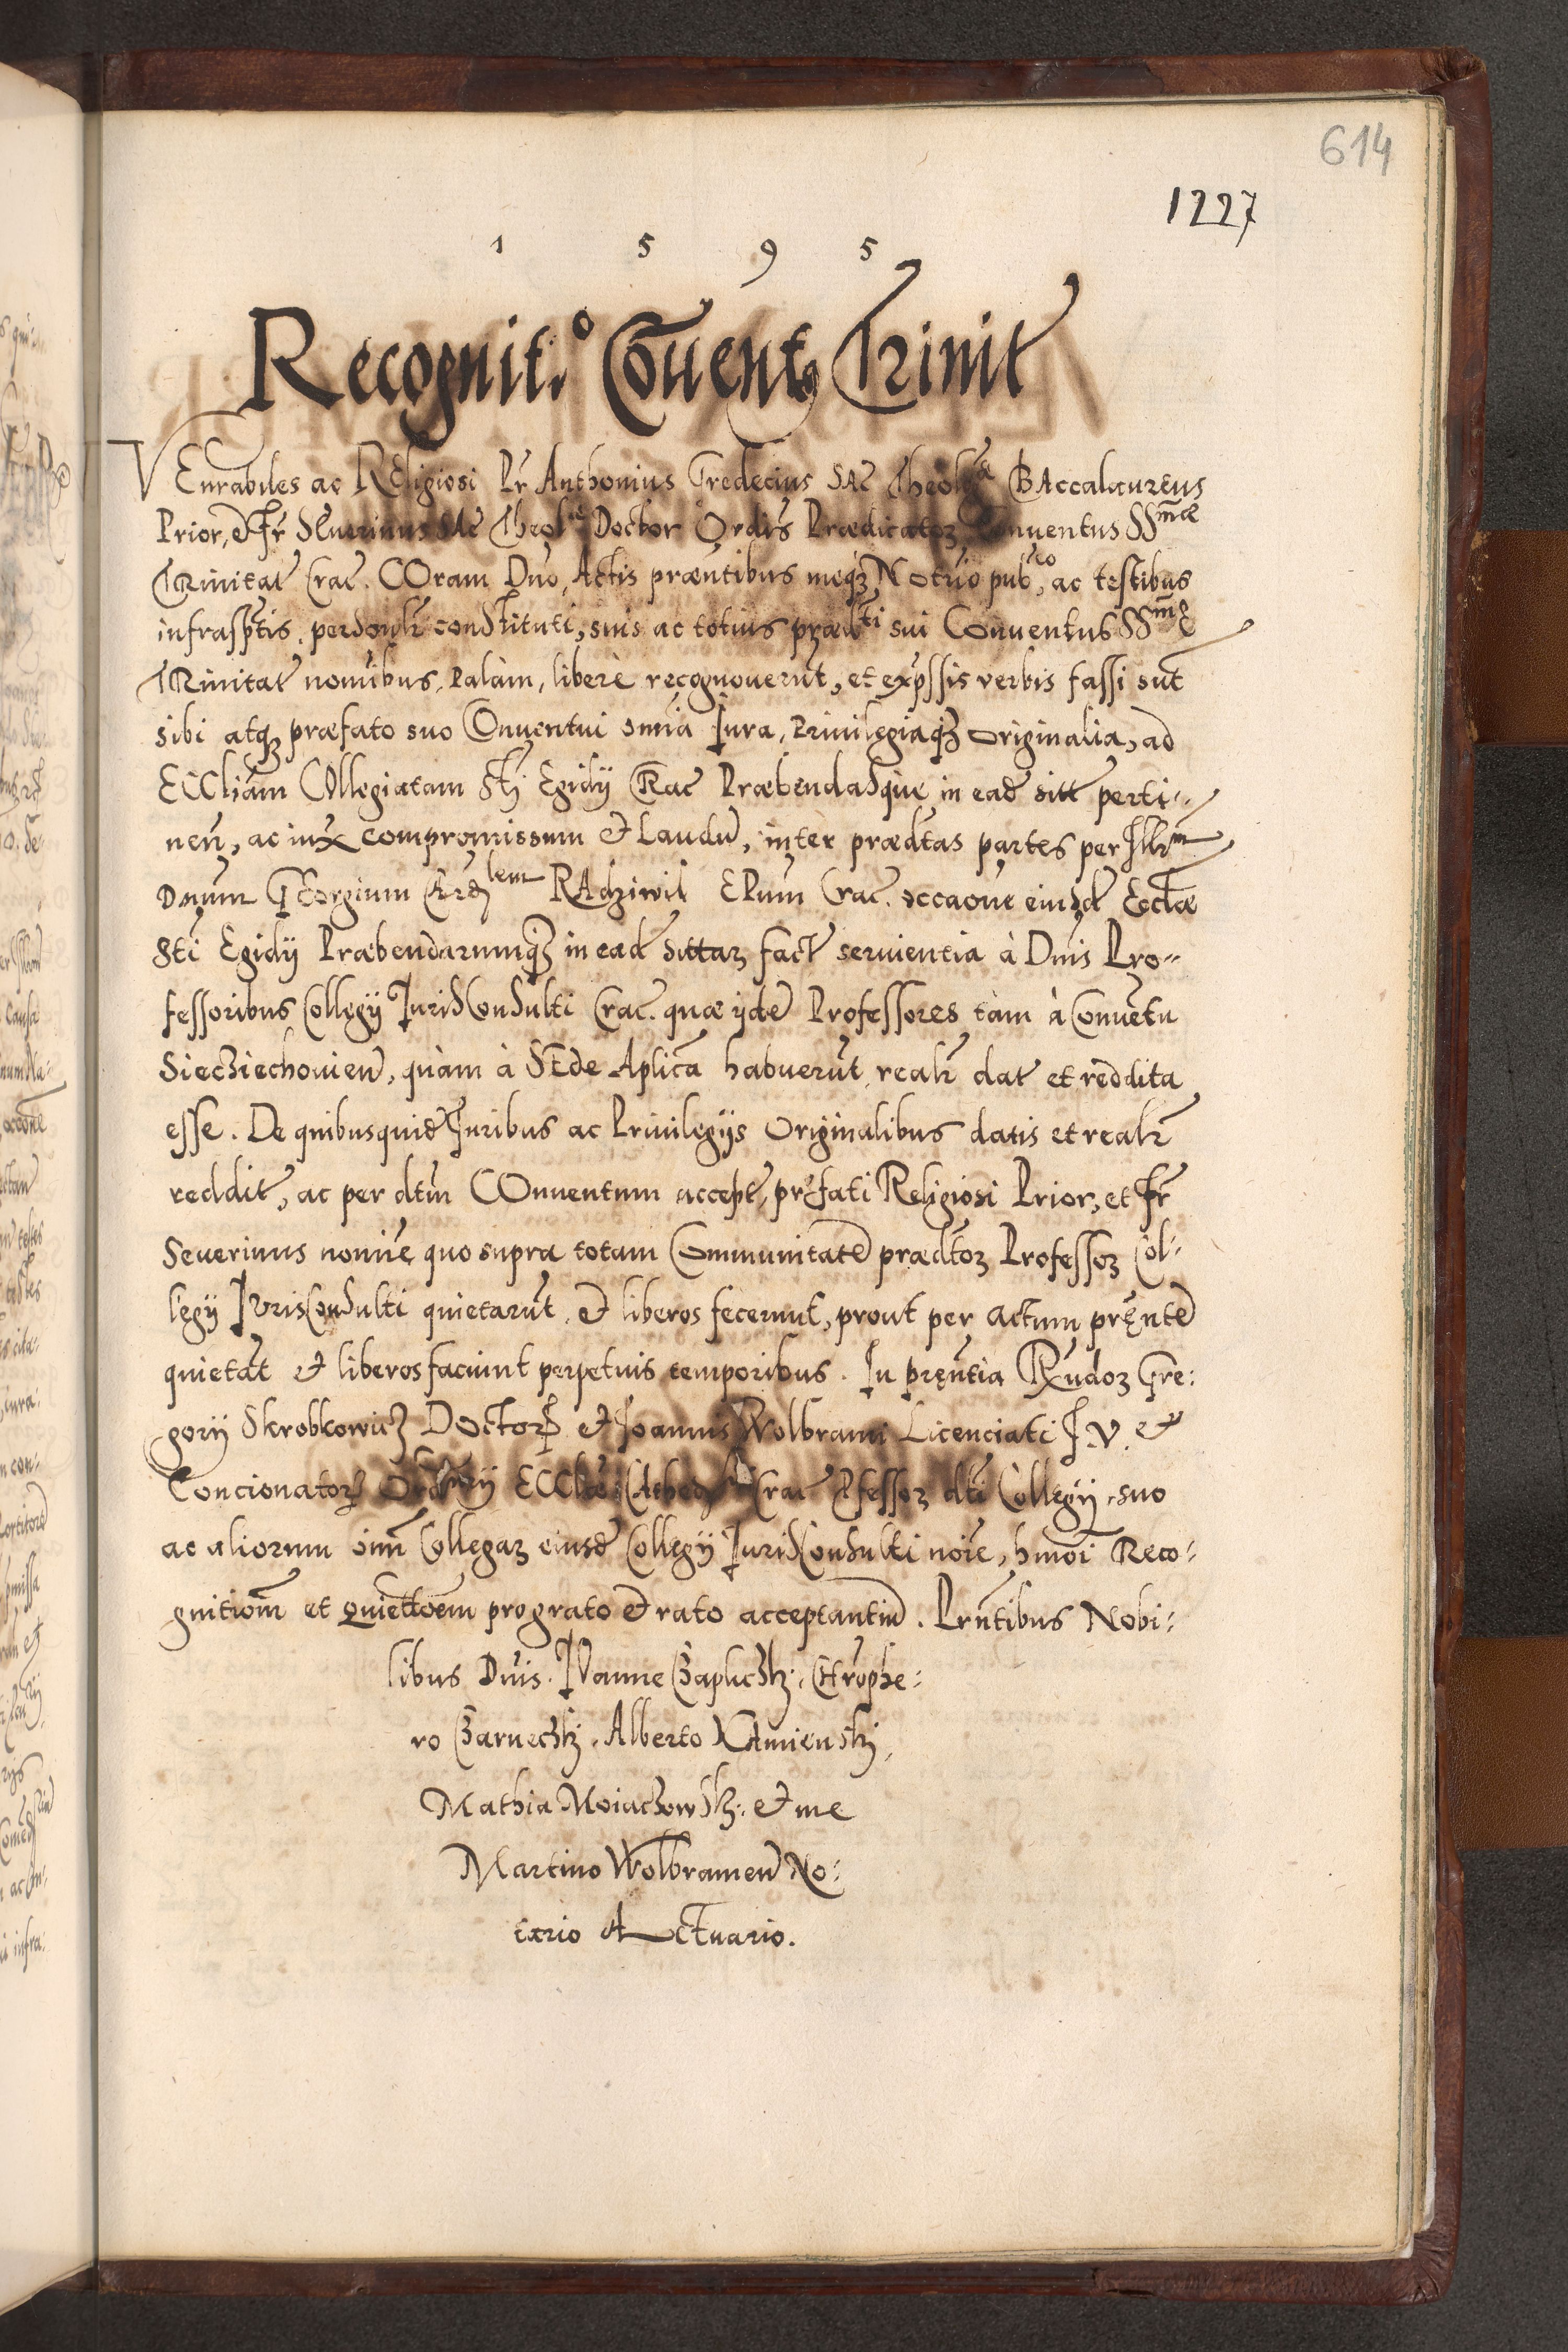 614
1227
1 5 9 5
Recognit.º Cōuentꝰ Trinit
VEnrabiles ac REligiosi Pr Anthonius Gredecius SAc Theolgæ BAccalaureus
Prior, et Fr SEuerinus SAc Theolæ Doctor Ordis Prædicatoꝝ Conuentus SSmæ
TRinitat Crac. COram Dno, Actis præntibus meqꝫ NOtrio pubco, ac testibus
infrasptis. personlr constituti, suis ac totius prædti sui Conuentus SSmę
TRinitat nomibus, palàm, liberè recognouerūt, et expssis verbis fassi sūt
sibi atqꝫ præfato suo COnuentui omia Iura, Priuilegiaqꝫ originalia, ad
ECCliam COllegiatam Sti Egidij CRac Præbendasque in ead sitt perti-
nen, ac iux compromissum et Laudū, inter prædtas partes per Illrm
Dnum GEorgium Cardlem RAdziwil EPum Crac. occaone eiusd Ecctæ
Sti Egidij Præbendarumqꝫ in ead sittaꝝ fact seruientia à Dnis Pro-
fessoribus Collegij IurisConsulti Crac. quæ ijdē Professores tàm à Conuētu
Siecziechouien, quàm à SEde Aplica habuerūt realr dat et reddita
esse. De quibusquid Iuribus ac Priuilegijs Originalibus datis et realr
reddit, ac per dtm COnuentum accept, prefati Religiosi Prior, et Fr
Seuerinus nomine quo supra totam Communitatē prædtoꝝ Professoꝝ Col-
legij IVrisConsulti quietarūt et liberos fecerunt, prout per actum pręntē
quietāt et liberos faciunt perpetuis temporibus. In pręntia RXndoꝝ Gre-
gorij Skrobkowicz DOctoris et Ioannis Wolbrami Licenciati I.V. et
Concionatoris Ordrij ECClæ CAthedrlis Crac Pfessoꝝ dti Collegij, suo
ac aliorum oim Collegaꝝ eiusd Collegij IurisConsulti noie, hmoi Reco-
gnitiom et Quiettoem pro grato et rato acceptantiū. Prntibus Nobi-
libus Dnis. IOanne Czaplicski, CHrophe-
ro Czarnecski, Alberto KAmienski,
Mathia Moiaczowski et me
Martino Wolbramen No-
tario ActVario.